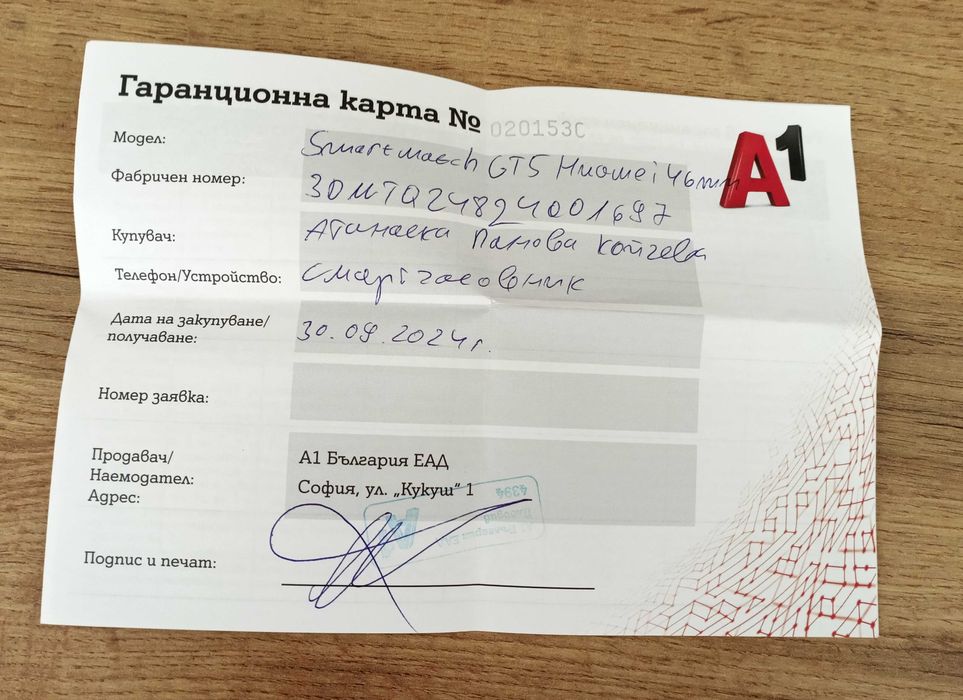 Гаранционна карта № 020153C
A1
Модел: Smartwatch GT5 Huawei 46mm
Фабричен номер: 30MTQ24824001697
Купувач: Атанаска Панова Койчева
Телефон/Устройство: Смарт часовник
Дата на закупуване/
получаване: 30.09.2024г.
Номер заявка:
Продавач/
Наемодател: А1 България ЕАД
Адрес: София, ул. „Кукуш“ 1
4394
Подпис и печат: